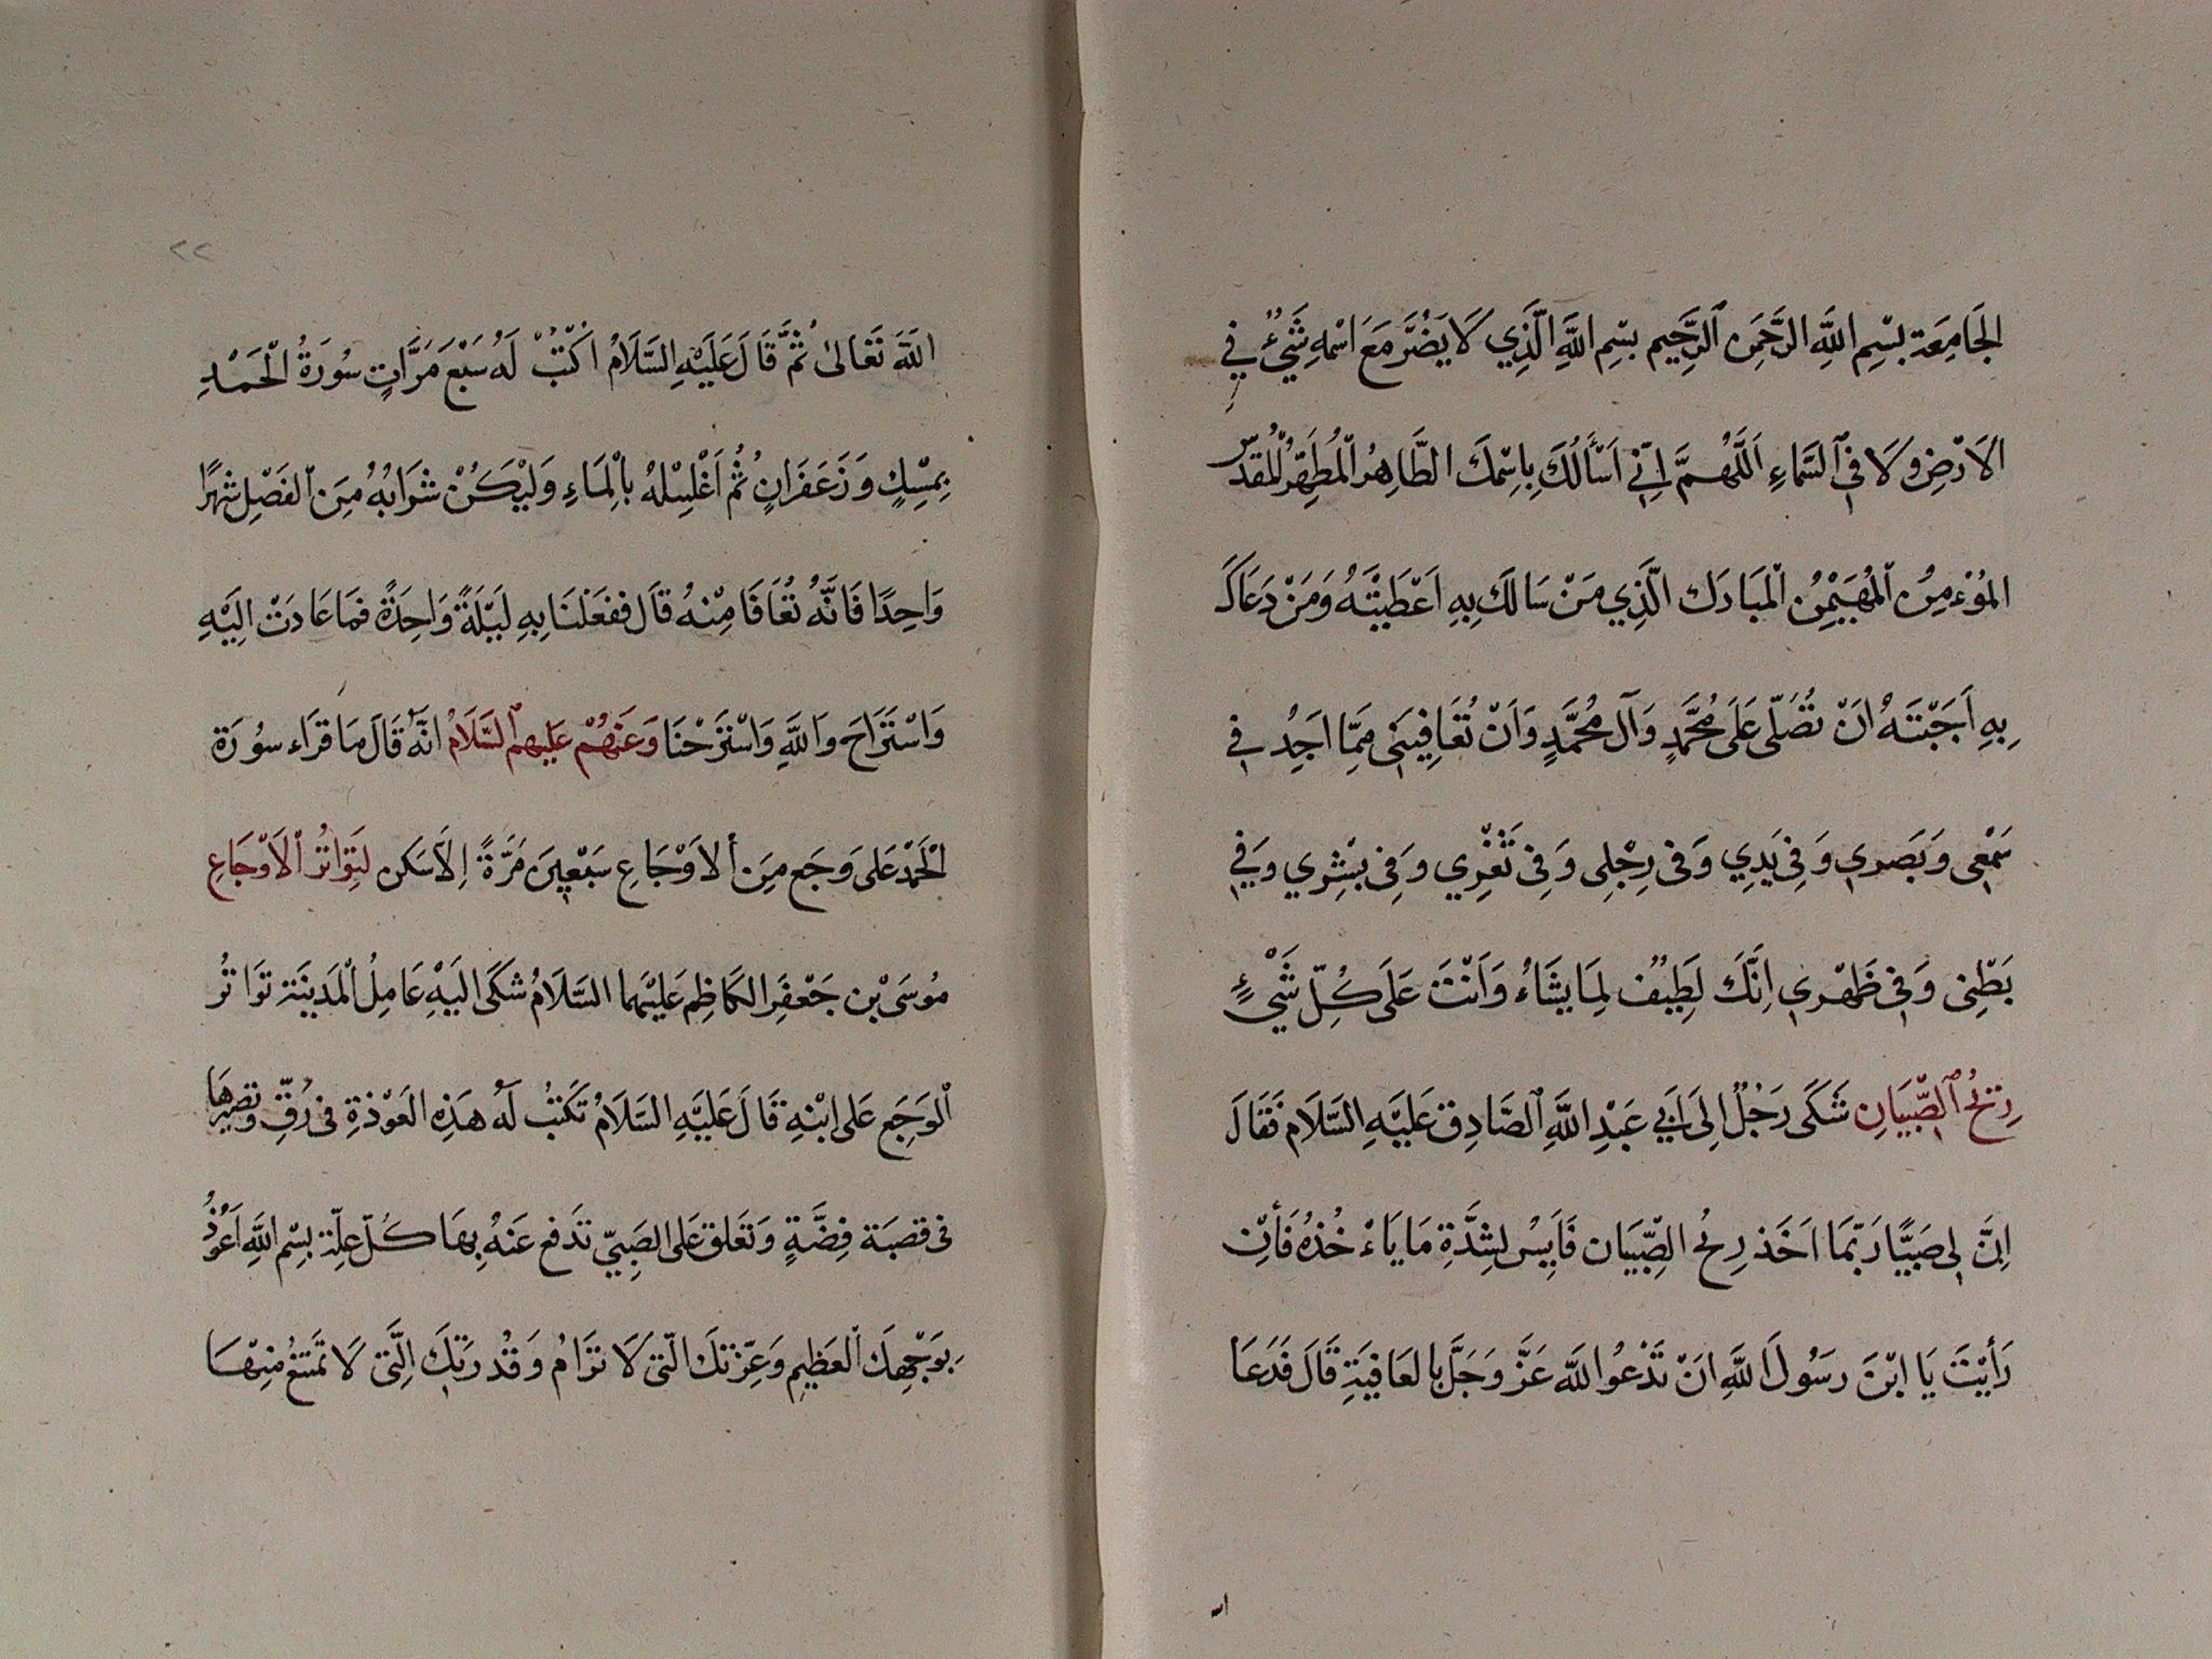 الجَامِعَة بِسْمِ اللَّهِ الرَّحْمَنِ ٱلرَّحِيمِ بِسْمِ اللَّهِ الَّذِي لَا يَضُرُّ مَعَ اسْمِهِ شَيْءٌ فِي
الاَرْضِ وَلَا فِي ٱلسَّمَاءِ اَللَّهُمَّ اِنِّي اَسْأَلُكَ بِاسْمِكَ الطَّاهِرُ الْمُطَهِّرُ الْمُقَدَّسِ
المُؤْمِنُ الْمُهَيْمِنُ الْمُبَارَك الَّذِي مَنْ سَالَكَ بِهِ اَعْطَيْتَهُ وَمَنْ دَعَاكَ
بِهِ اَجَبْتَهُ اَنْ تُصَلِّى عَلَى مُحَمَّدٍ وَآلِ مُحَمَّدٍ وَاَنْ تُعَافِيَنِى مِمَّا اَجِدُ فِي
سَمْعِى وَبَصَرِي وَفِي يَدِي وَفِى رِجْلِى وَفِى ثَغْرِي وَفِى بَشَرِي وَفِي
بَطْنِى وَفِي ظَهْرِي اِنَّكَ لَطِيفٌ لِمَا يَشَاءُ وَاَنْتَ عَلَى كُلِّ شَيْءٍ
رِيحُ ٱلصِّبْيَانِ شَكَى رَجُلٌ اِلَى اَبِي عَبْدِ اللَّهِ ٱلصَّادِقِ عَلَيْهِ السَّلَام فَقَالَ
اِنَّ لِى صَبِيًّا رُبَّمَا اَخَذَ رِيحُ الصِّبْيَان فَاَيِسُ لِشِدَّةِ مَا يَاءْخُذُهُ فَأِنْ
رَأَيْتَ يَا ابْنَ رَسُولَ اللَّهِ اَنْ تَدْعُو اللَّهَ عَزَّ وَجَلَّ بِالعَافِيَةِ قَالَ فَدَعَا
٢٢
اللَّهَ تَعَالىٰ ثُمَّ قَالَ عَلَيْهِ السَّلَامُ اكْتُبْ لَهُ سَبْعَ مَرَّاتٍ سُورَةُ الْحَمْدِ
بِمِسْكٍ وَزَعَفَرَانٍ ثُمَّ اَغْسِلْهُ بِالْمَاءِ وَلْيَكُنْ شَرَابُهُ مِنَ الفَصْلِ شَهْرًا
وَاحِدًا فَانَّهُ تُعَافَا مِنْهُ قَالَ فَفَعَلْنَا بِهِ لَيْلَةً وَاحِدَةً فَمَا عَادَتْ اِلَيْهِ
وَاسْتَرَاحَ وَاللَّهِ وَاسْتَرَحْنَا وَعَنْهُمْ عَلَيهم السَّلَامُ انَّهُ قَالَ مَا قَرَاء سُورَة
الْحَمْد عَلى وَجَع مِنَ ألاَوْجَاعِ سَبْعِينَ مَرَّةً اِلَّا سَكن لِتَوَاتُرُ ٱلاَوْجَاعِ
مُوسَى بْن جَعْفَرِ الكَاظِمِ عَلَيْهِمَا السَّلَامُ شَكَى اِلَيْهِ عَامِلُ الْمَدِينَة تَوَاتُر
الْوَجَع عَلى ابْنِهِ قَالَ عَلَيْهِ السَّلَامُ تَكْتُبُ لَهُ هَذِهِ العَوْذَةِ فى رَقّ وَتصيرهَا
فى قصَبَة فِضَّةٍ وَتَعَلق عَلى الصَبِيّ تَدفع عَنْهُ بِهَا كُلّ عِلّة بِسْمِ اللَّهِ اَعُوْذُ
بِوَجْهِكَ الْعَظِيمِ وَعِزّتكَ الَّتى لَا تَرَامُ وَقُدْرَتِكَ الَّتى لَا تَمْتَنِعُ مِنْهَا